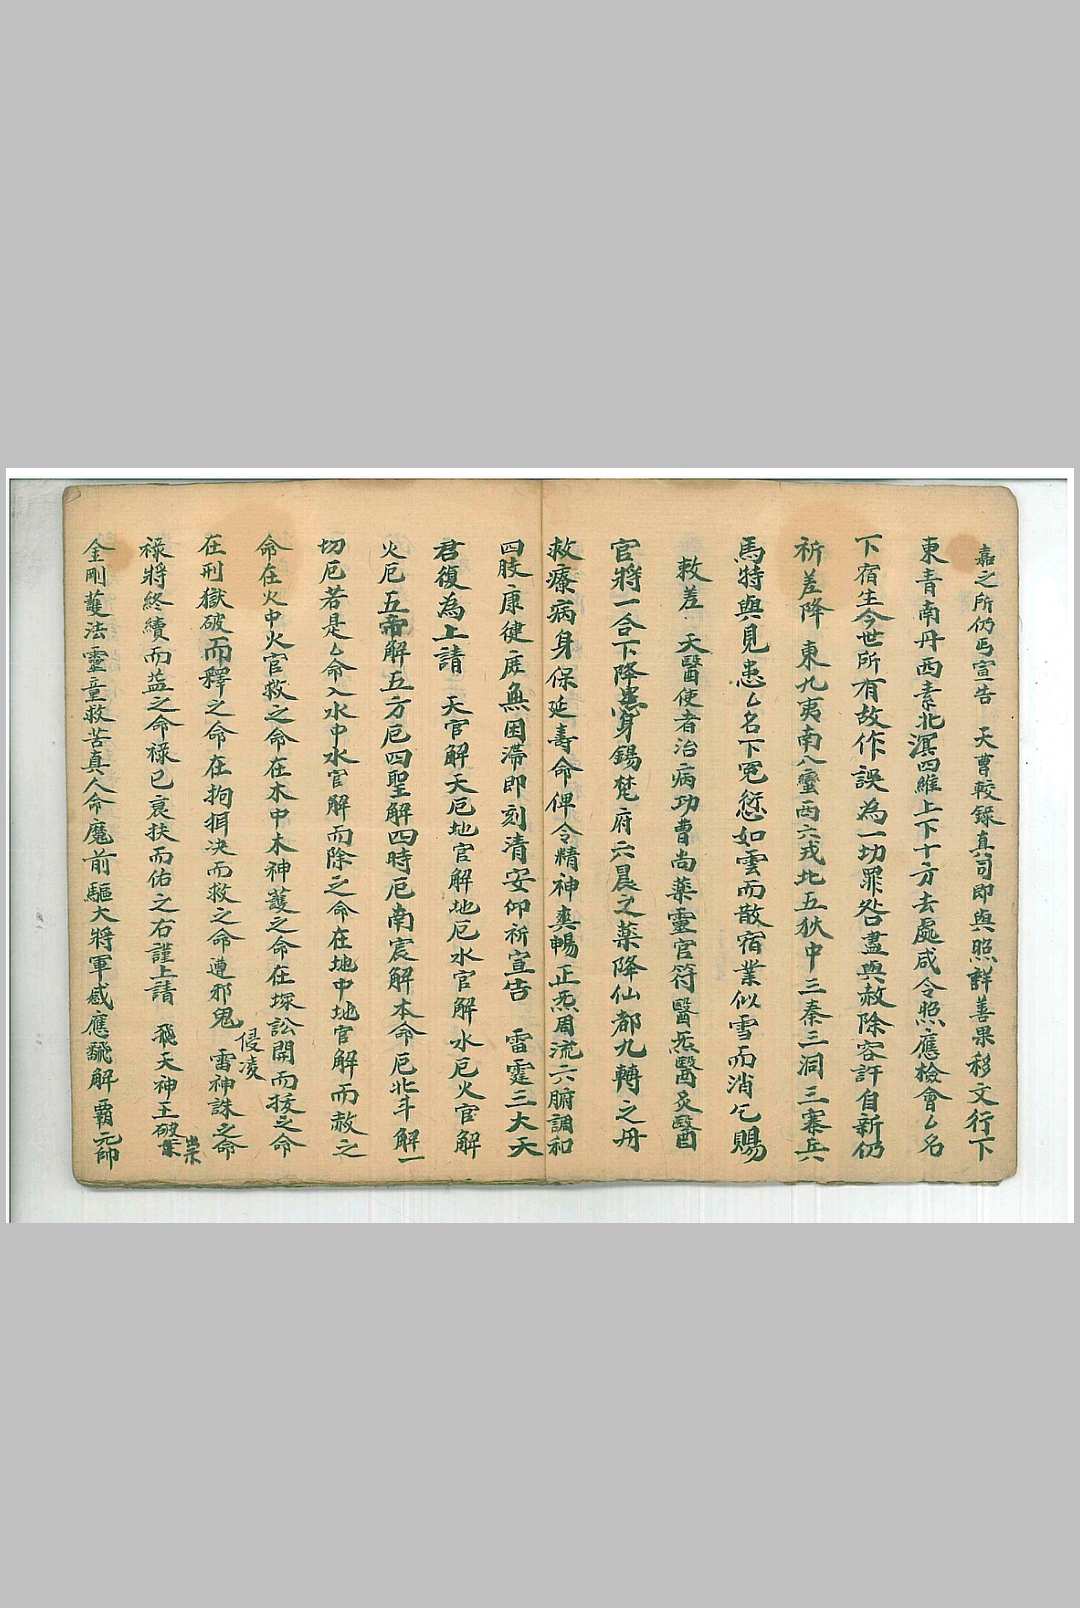 嘉之所仍丐宣告　天曹較録真司即與照詳善果移文行下
東青南丹西素北溟四維上下十方去處咸令照應檢會厶名
下宿生今世所有故作誤為一切罪咎盡與赦除容許自新仍
祈差降　東九夷南八蠻西六戎北五狄中三秦三洞三寨兵
馬特與見患厶名下冤愆如雲而散宿業似雪而消乞賜
敕差　天醫使者治病功曹尚藥靈官符醫炁醫灸醫
官將一合下降患身錫梵府六晨之藥降仙都九轉之丹
救療病身保延壽命俾令精神爽暢正炁周流六腑調和
四肢康健庶無困滯即刻清安仰祈宣告　雷霆三大天
君復為上請　天官解天厄地官解地厄水官解水厄火官解
火厄五帝解五方厄四聖解四時厄南宸解本命厄北斗解一
切厄若是厶命入水中水官解而除之命在地中地官解而赦之
命在火中火官救之命在木中木神護之命在塚訟開而拔之命
在刑獄破而釋之命在拘抯决而救之命遭邪鬼侵凌　雷神誅之命
祿將終續而益之命祿已衰扶而佑之右謹上請　飛天神王破業
金剛護法靈童救苦真人命魔前驅大將軍感應飜解霸元帥